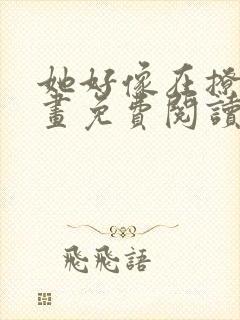 她好像在撩
畫免費閱讀
飛飛語